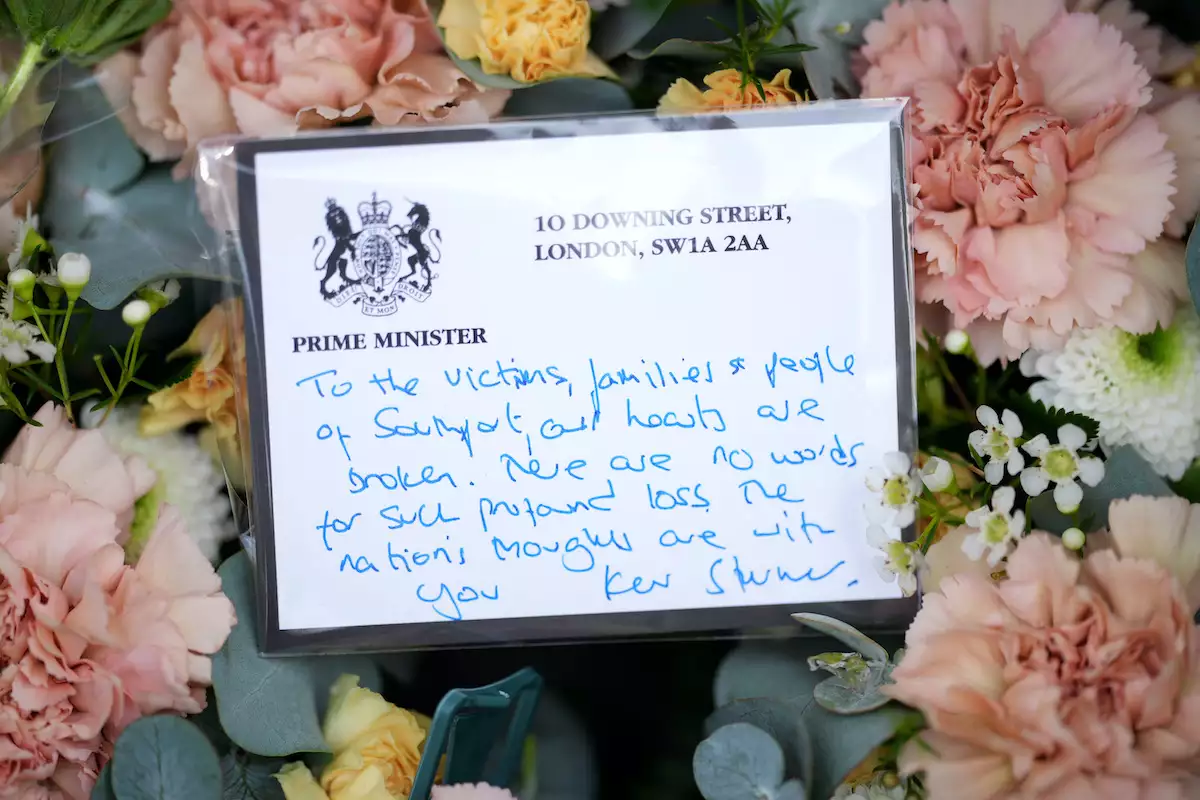 10 DOWNING STREET,
LONDON, SW1A 2AA
DIEU ET MON DROIT
PRIME MINISTER
To the victims, families & people
of Southport, our hearts are
broken. There are no words
for such profound loss. The
nation's thoughts are with
you Keir Starmer.